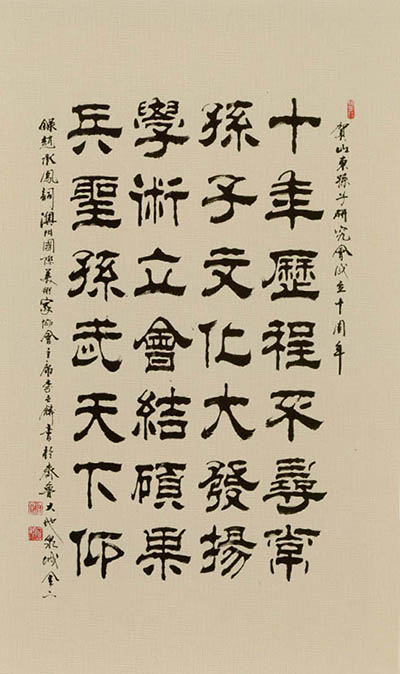 賀山東孫子研究會成立十周年
十年歷程不尋常
孫子文化大發揚
學術立會結碩果
兵聖孫武天下仰
錄趙承鳳詞澳門國際美術家協會主席李麟書於齊魯大地泉城